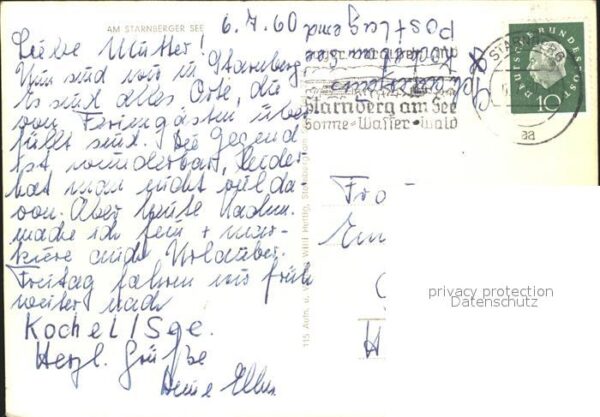 AM STARNBERGER SEE
6.7.60
Liebe Mutter!
Nun sind wir in Starnberg,
Es sind alles Orte, die
von Feriengästen über
füllt sind. Die Gegend
ist wunderbar, leider
hat man nicht viel da
von. Aber heute Nachm.
mache ich fein + mar-
kiere auch Urlauber.
Freitag fahren wir früh
weiter nach
Kochel/Sge.
Herzl. Grüße
Deine
Kochel am See
Postlagernd
Starnberg am See
Sonne-Wasser-Wald
STARNBERG
aa
DEUTSCHE BUNDESPOST
10
Fr
privacy protection
Datenschutz